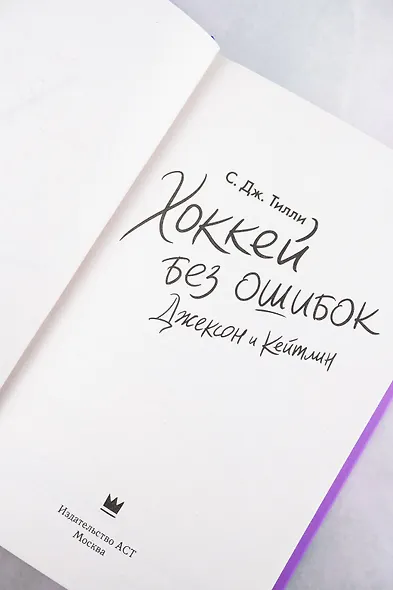 С. Дж. Тилли
Хоккей
без ошибок
Джексон и Кейтлин
Издательство АСТ
Москва